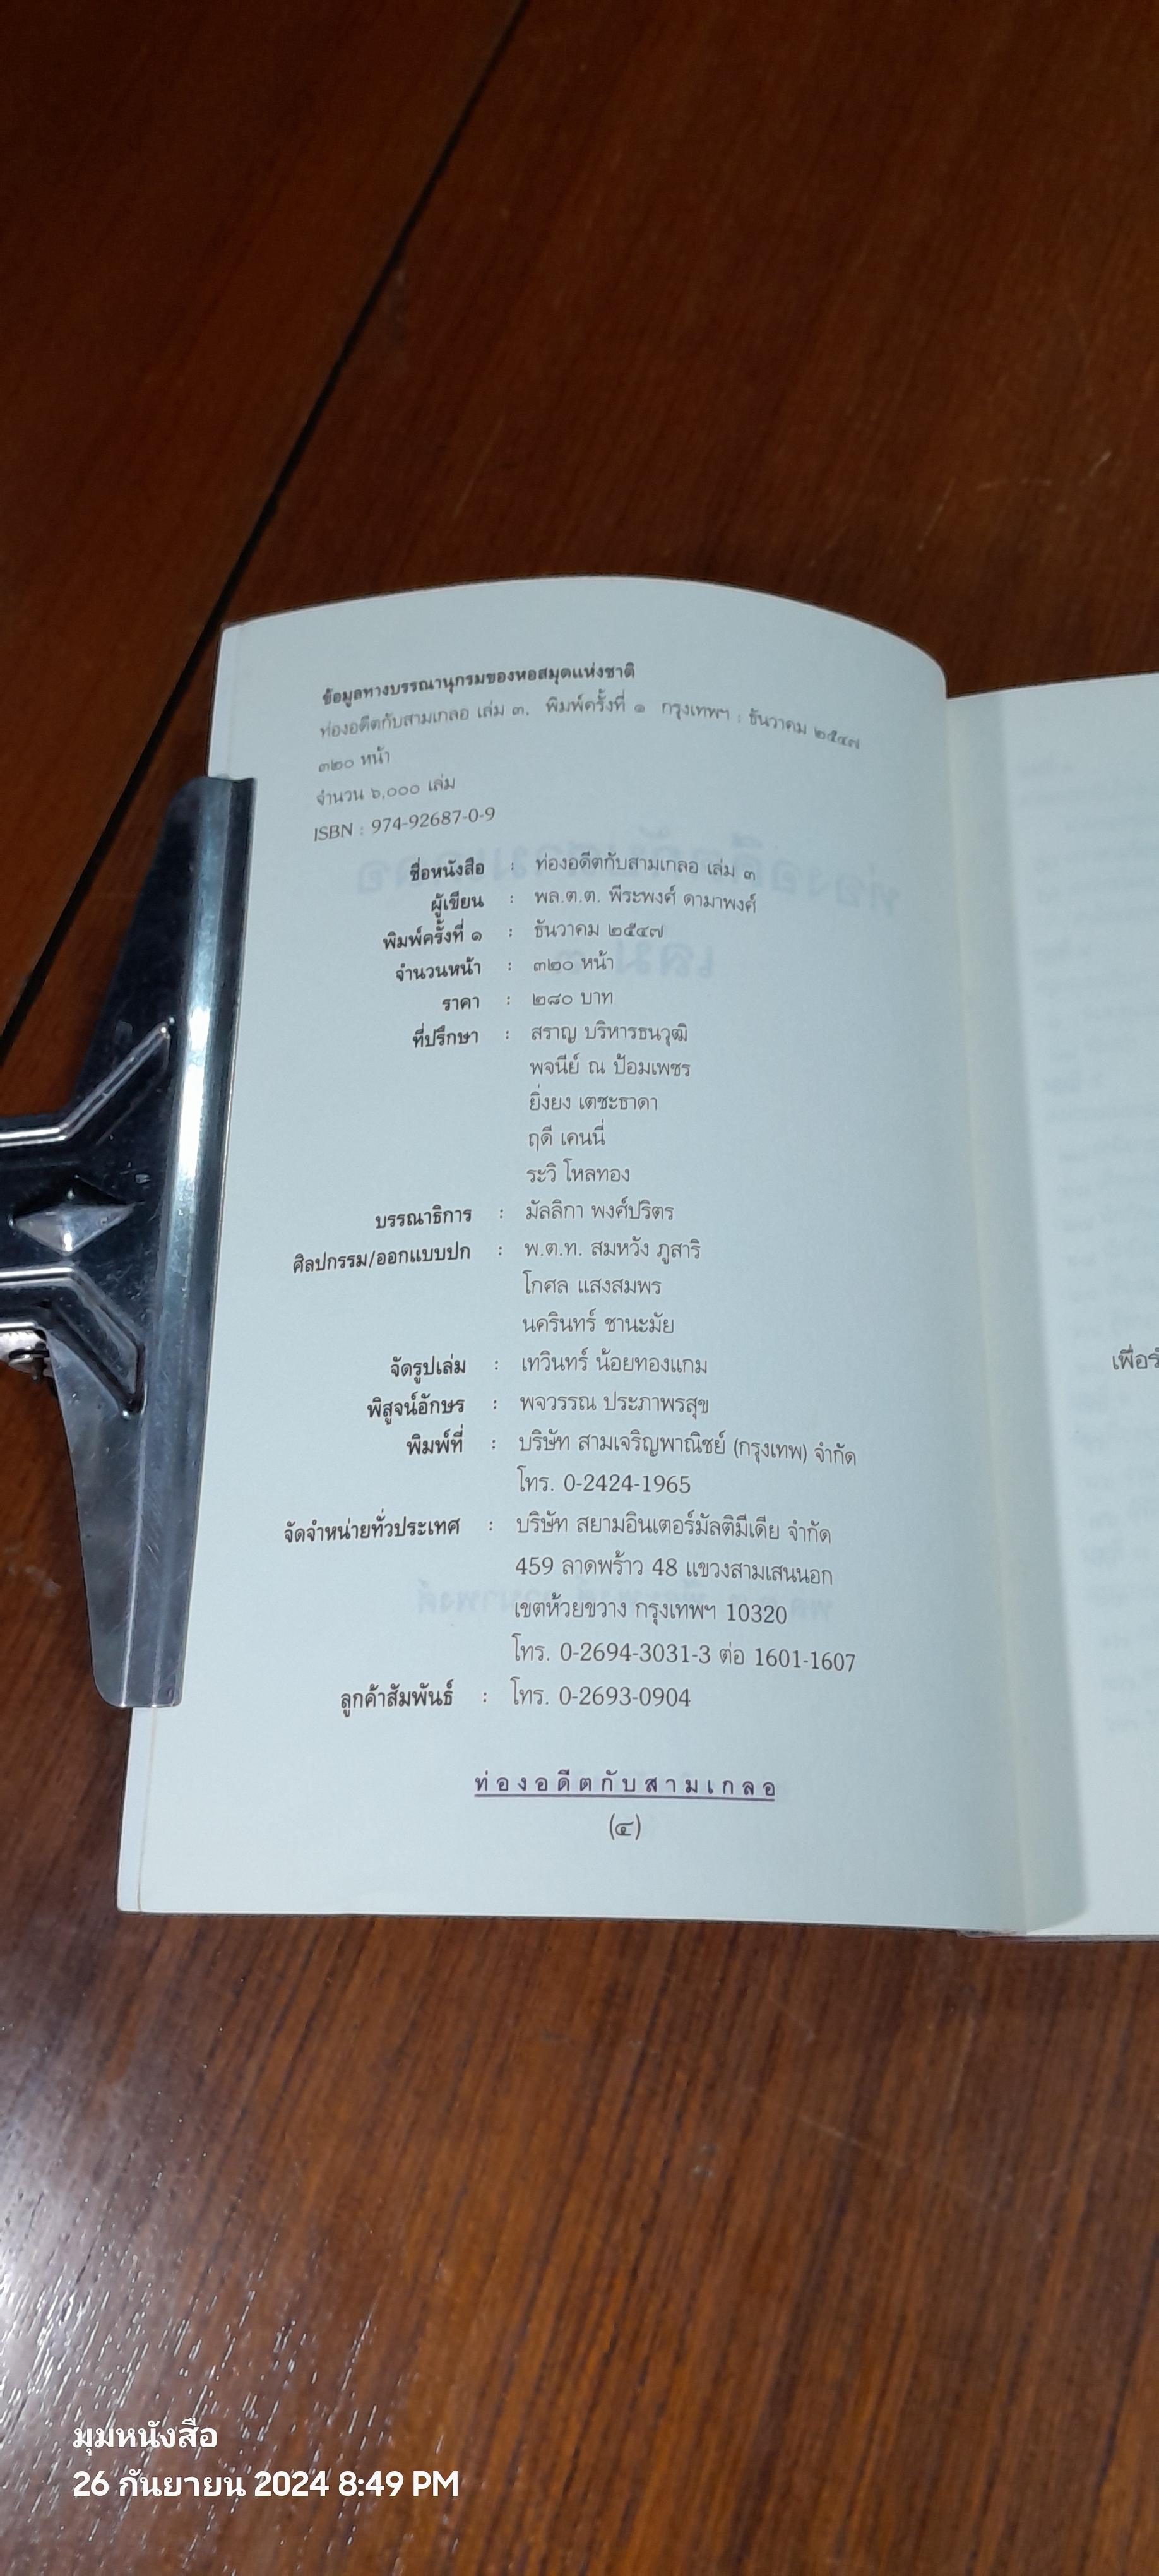 ข้อมูลทางบรรณานุกรมของหอสมุดแห่งชาติ
ท่องอดีตกับสามเกลอ เล่ม ๓. พิมพ์ครั้งที่ ๑ กรุงเทพฯ : ธันวาคม ๒๕๔๗
๓๒๐ หน้า
จำนวน ๖,๐๐๐ เล่ม
ISBN : 974-92687-0-9
ชื่อหนังสือ : ท่องอดีตกับสามเกลอ เล่ม ๓
ผู้เขียน : พล.ต.ต. พีระพงศ์ ดามาพงศ์
พิมพ์ครั้งที่ ๑ : ธันวาคม ๒๕๔๗
จำนวนหน้า : ๓๒๐ หน้า
ราคา : ๒๘๐ บาท
ที่ปรึกษา : สราญ บริหารธนวุฒิ
พจนีย์ ณ ป้อมเพชร
ยิ่งยง เตชะธาดา
ฤดี เคนนี่
ระวิ โหลทอง
บรรณาธิการ : มัลลิกา พงศ์ปริตร
ศิลปกรรม/ออกแบบปก : พ.ต.ท. สมหวัง ภูสาริ
โกศล แสงสมพร
นครินทร์ ชานะมัย
จัดรูปเล่ม : เทวินทร์ น้อยทองแกม
พิสูจน์อักษร : พจวรรณ ประภาพรสุข
พิมพ์ที่ : บริษัท สามเจริญพาณิชย์ (กรุงเทพ) จำกัด
โทร. 0-2424-1965
จัดจำหน่ายทั่วประเทศ : บริษัท สยามอินเตอร์มัลติมีเดีย จำกัด
459 ลาดพร้าว 48 แขวงสามเสนนอก
เขตห้วยขวาง กรุงเทพฯ 10320
โทร. 0-2694-3031-3 ต่อ 1601-1607
ลูกค้าสัมพันธ์ : โทร. 0-2693-0904
ท่องอดีตกับสามเกลอ
(๔)
มุมหนังสือ
26 กันยายน 2024 8:49 PM